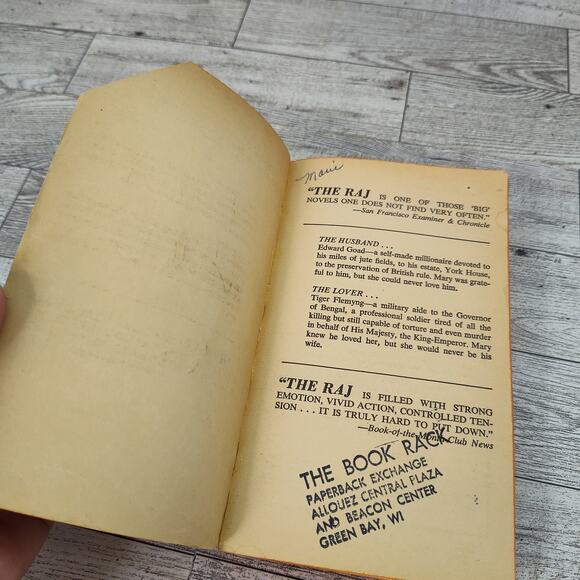 Marie
"THE RAJ IS ONE OF THOSE 'BIG'
NOVELS ONE DOES NOT FIND VERY OFTEN."
—San Francisco Examiner & Chronicle
THE HUSBAND . . .
Edward Goad—a self-made millionaire devoted to
his miles of jute fields, to his estate, York House,
to the preservation of British rule. Mary was grate-
ful to him, but she could never love him.
THE LOVER . . .
Tiger Flemyng—a military aide to the Governor
of Bengal, a professional soldier tired of all the
killing but still capable of torture and even murder
in behalf of His Majesty, the King-Emperor. Mary
knew he loved her, but she would never be his
wife.
"THE RAJ IS FILLED WITH STRONG
EMOTION, VIVID ACTION, CONTROLLED TEN-
SION . . . IT IS TRULY HARD TO PUT DOWN."
—Book-of-the-Month-Club News
THE BOOK RACK
PAPERBACK EXCHANGE
ALLOUEZ CENTRAL PLAZA
AND BEACON CENTER
GREEN BAY, WI